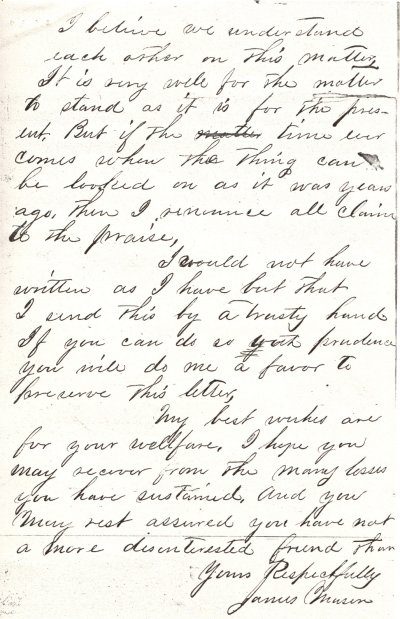 I believe we understand
each other on this matter,
It is very well for the matter
to stand as it is for the pres-
ent, But if the matter time ever
comes when the thing can
be looked on as it was years
ago, then I renounce all claim
to the praise,
I would not have
written as I have but that
I send this by a trusty hand
If you can do so with prudence
you will do me a favor to
preserve this letter,
My best wishes are
for your wellfare, I hope you
may recover from the many losses
you have sustained, And you
May rest assured you have not
a more disenterested friend than
Yours Respectfully
James Mason